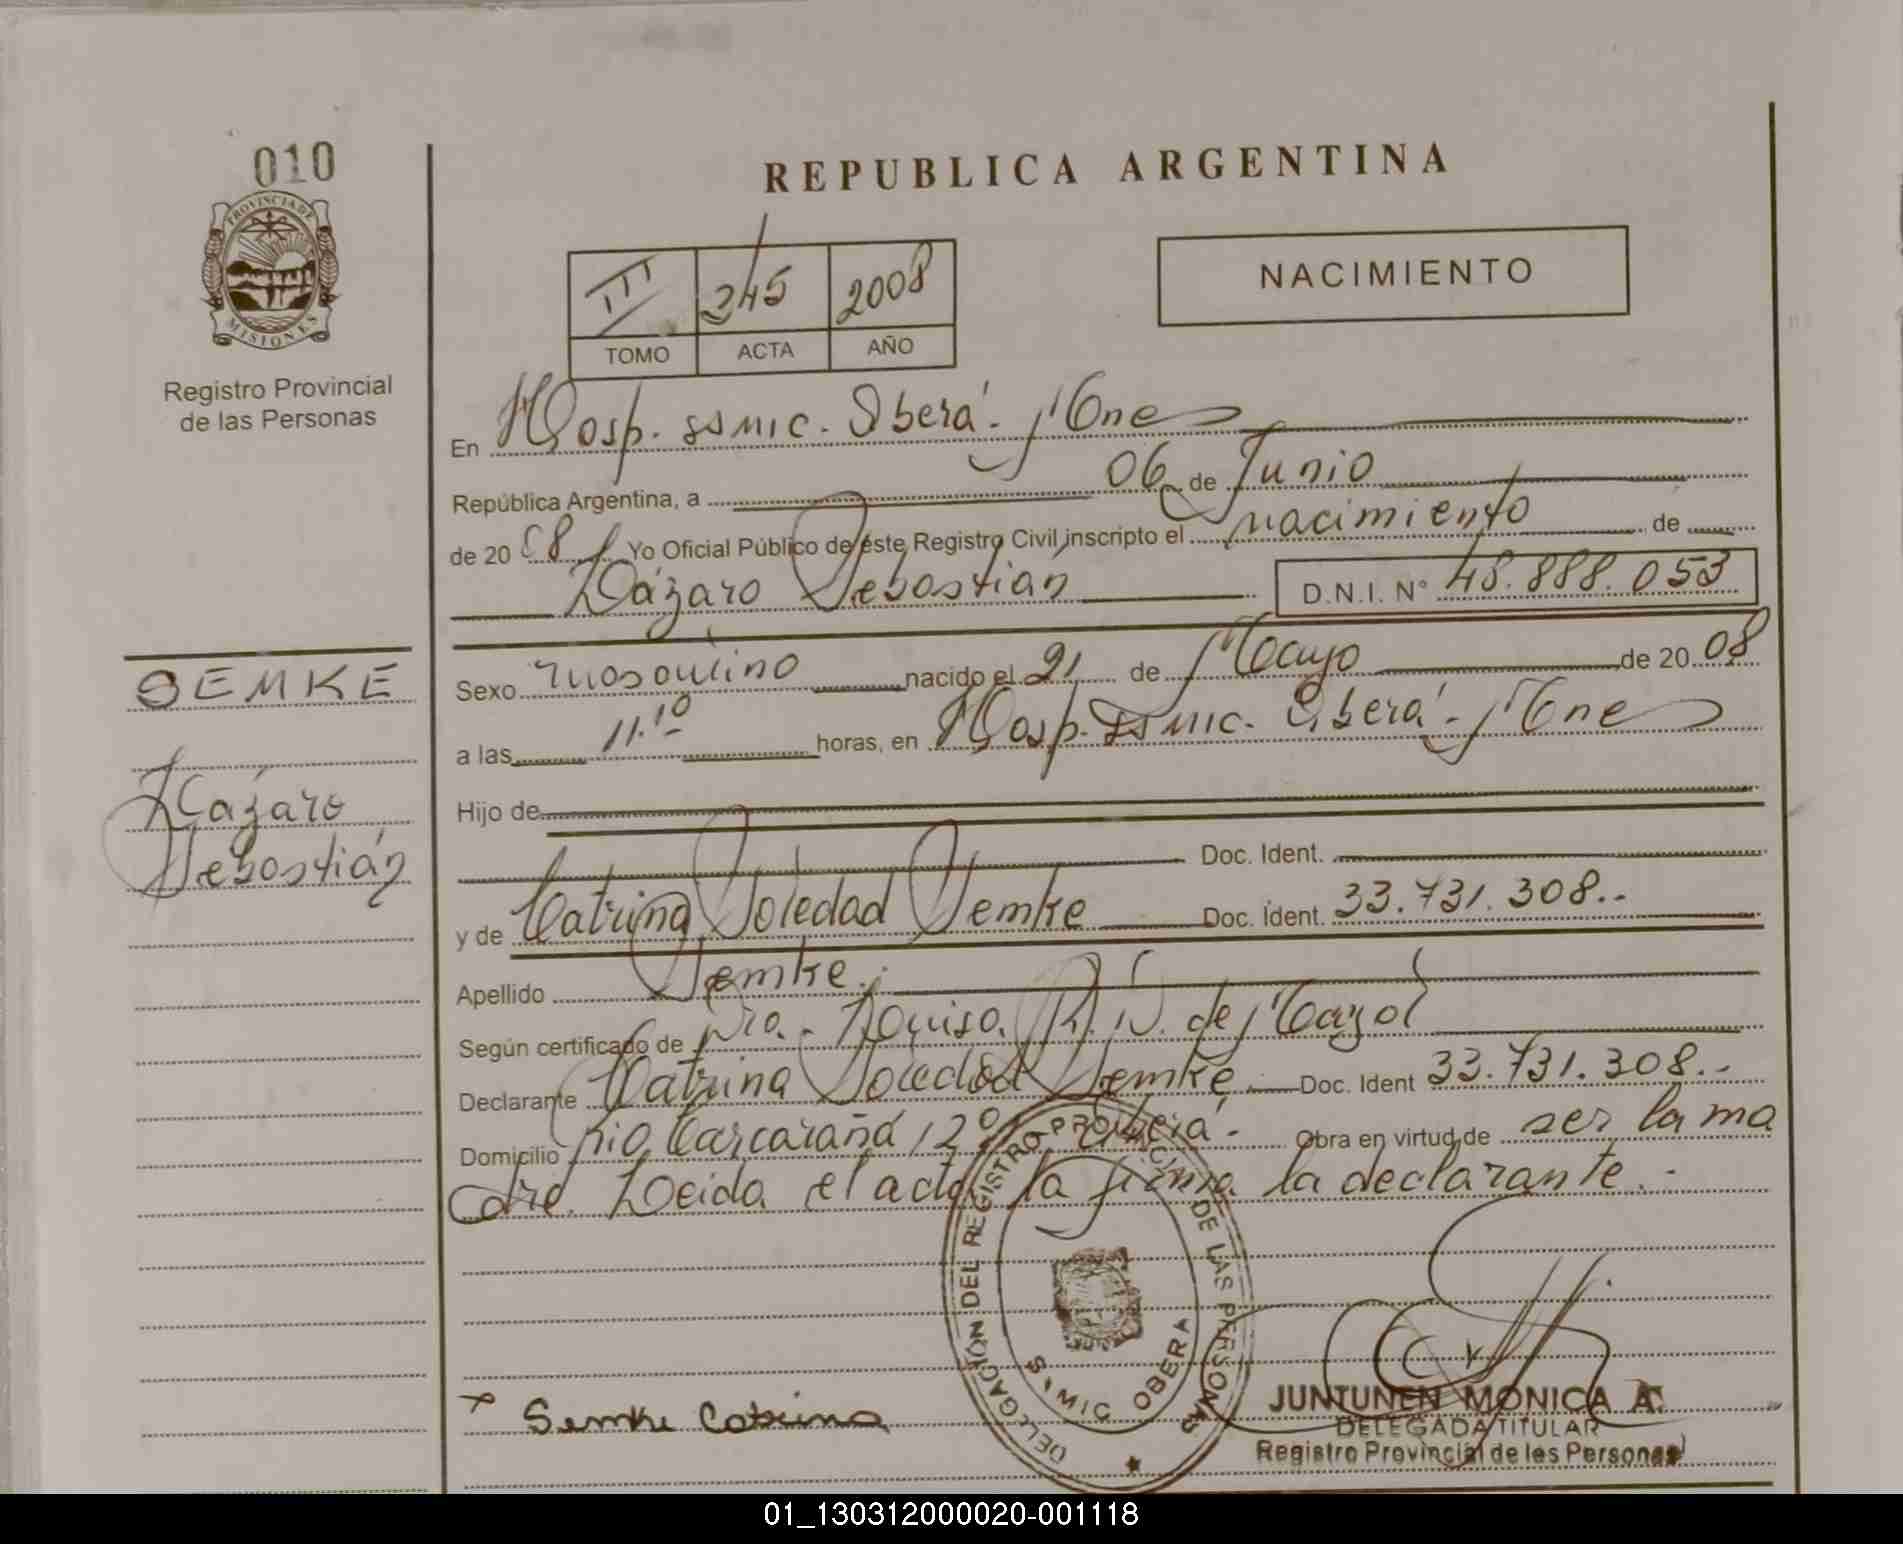 010
PROVINCIA DE
MISIONES
Registro Provincial
de las Personas
SEMKE
Lázaro
Sebastián
REPUBLICA ARGENTINA
III 245 2008
TOMO ACTA AÑO
NACIMIENTO
En Hosp. SSMIC. Oberá - Mnes
República Argentina, a 06 de Junio
de 2008 Yo Oficial Público de este Registro Civil inscripto el nacimiento de
Lázaro Sebastián D.N.I. N° 48.888.053
Sexo masculino nacido el 21 de Mayo de 2008
a las 11.10 horas, en Hosp. SSMIC. Oberá - Mnes
Hijo de
Doc. Ident.
y de Catrina Soledad Semke Doc. Ident. 33.731.308.-
Apellido Semke.
Según certificado de Dra. Louisa R. D. de Mayol
Declarante Catrina Soledad Semke. Doc. Ident 33.731.308.-
Domicilio Río Carcarañá, 2° Oberá - Obra en virtud de ser la ma
dre. Leida el acta la firma la declarante.-
DELEGACIÓN DEL REGISTRO PROVINCIAL DE LAS PERSONAS
OBERA
Semke Catrina
JUNTUNEN MONICA A.
DELEGADA TITULAR
Registro Provincial de las Personas
01_130312000020-001118